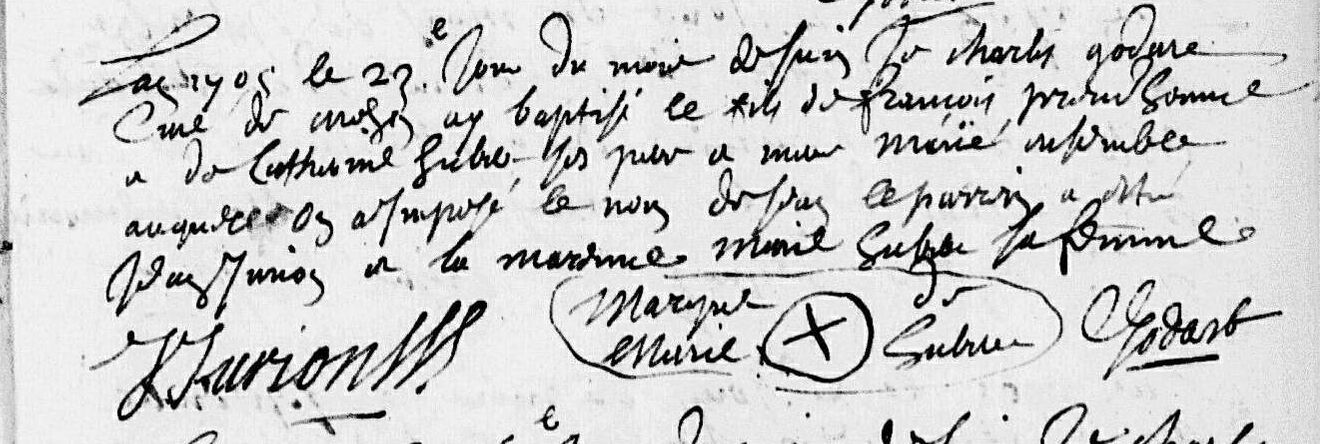 Lan 1705 le 23.e Jour du mois de juin Je charles godare
Curé de ay baptisé le fils de francois preudhomme
et de Catherine hubre ses pere et mere mariée ensemble
auquel on a imposé le nom de jean le parrin a esté
Jean Jurion et la marinne marie hubre sa femme
marque de
Marie X hubree
J Jurion CGodart